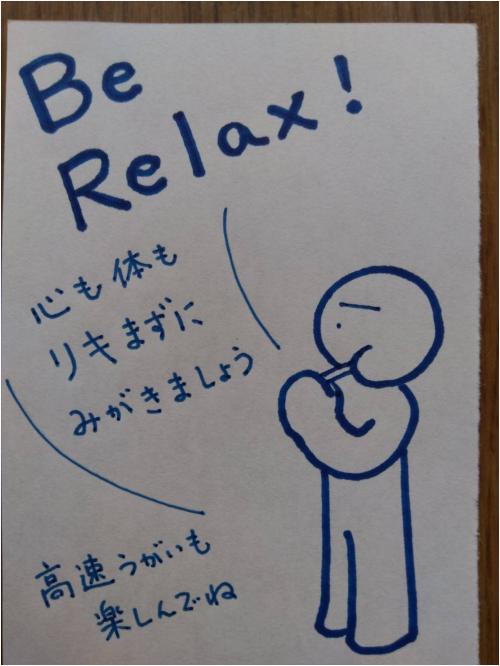 Be
Relax!
心も体も
リキまずに
みがきましょう
高速うがいも
楽しんでね